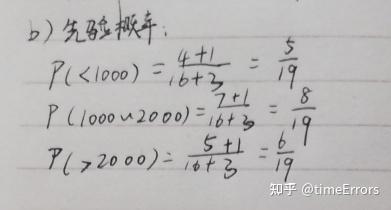 b) 先验概率:
P(<1000) = \frac{4+1}{16+3} = \frac{5}{19}
P(1000~2000) = \frac{7+1}{16+3} = \frac{8}{19}
P(>2000) = \frac{5+1}{16+3} = \frac{6}{19}
知乎 @timeErrors